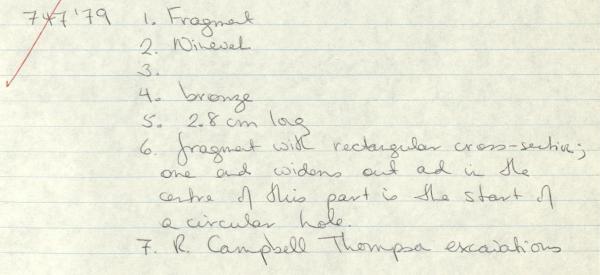 747'79 1. Fragment
2. Nineveh
3.
4. bronze
5. 2.8 cm long
6. fragment with rectangular cross-section;
one end widens out and in the
centre of this part is the start of
a circular hole.
7. R. Campbell Thompson excavations